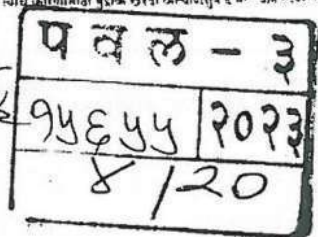 प व ल - ३
१५६५५ २०२३
४/20